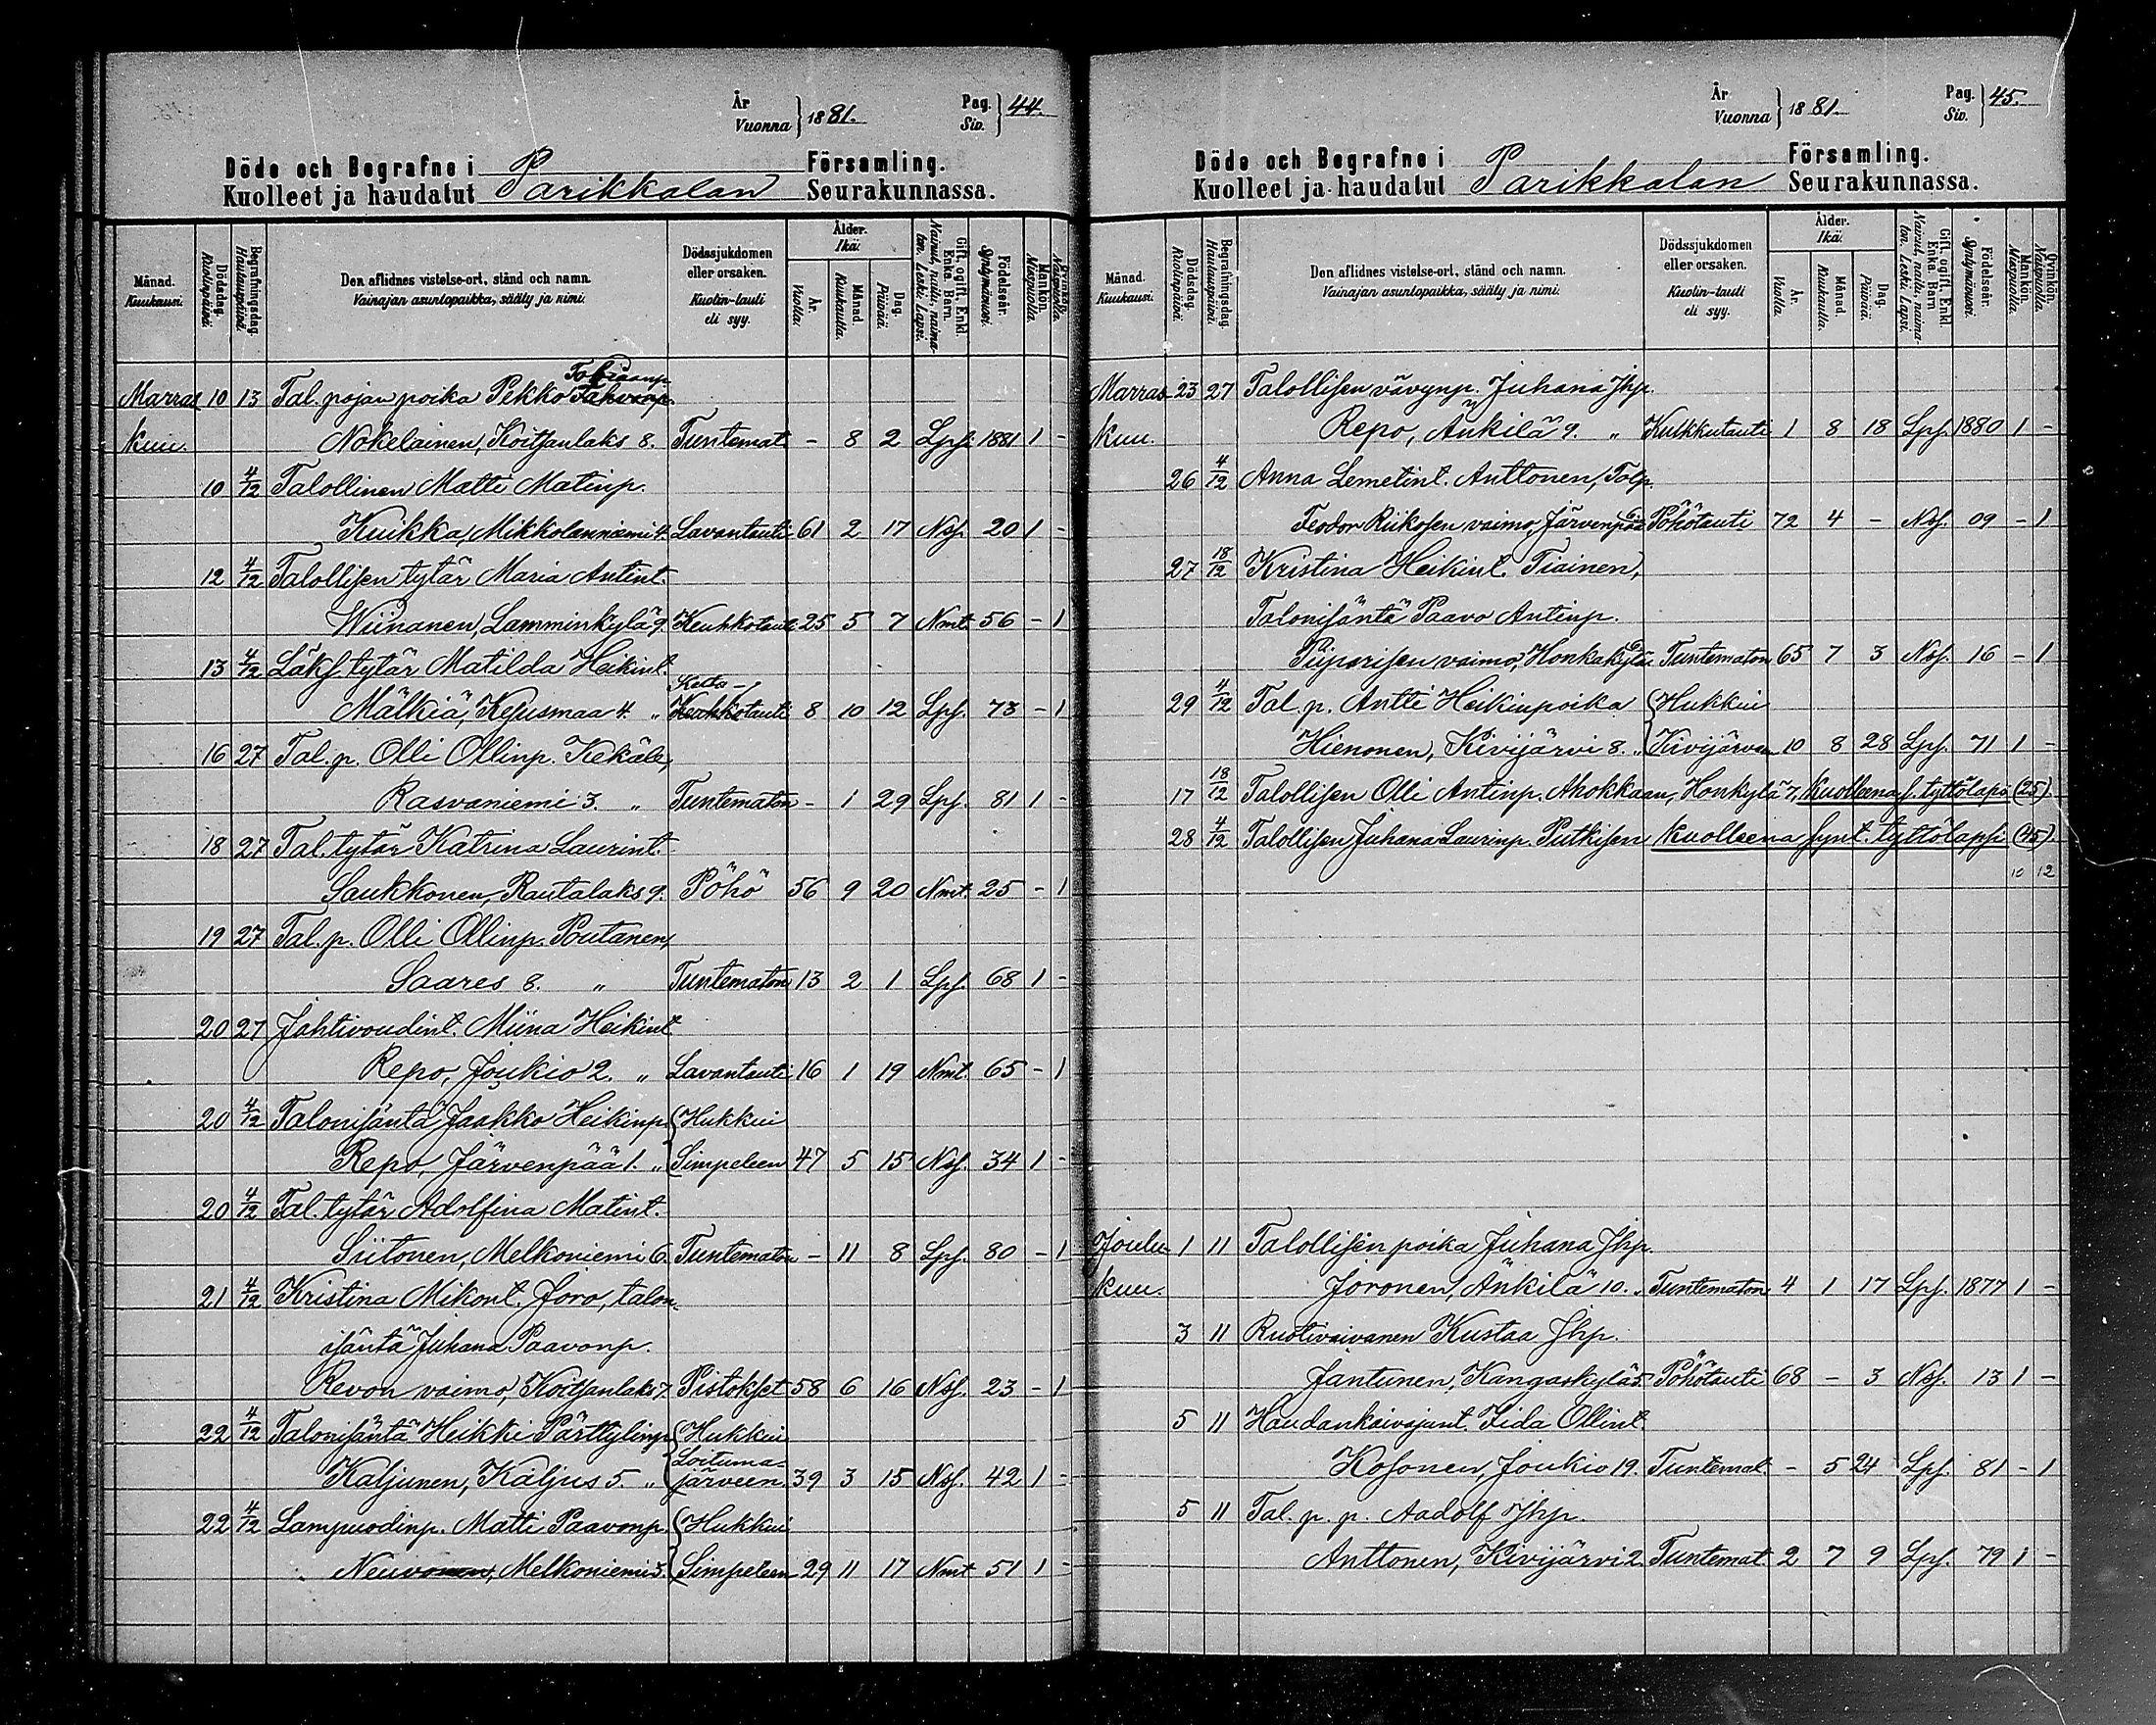 År
Vuonna } 1881.
Pag.
Siv. } 44.
Döde och Begrafne i Församling.
Kuolleet ja haudatut Parikkalan Seurakunnassa.
Månad. Kuukausi.
Dödsdag. Kuolinpäivä.
Begrafningsdag. Hautauspäivä.
Den aflidnes vistelse-ort, stånd och namn.
Vainajan asuntopaikka, sääty ja nimi.
Dödssjukdomen eller orsaken.
Kuolin-tauti eli syy.
Ålder. Ikä.
År. Vuotta.
Månad. Kuukautta.
Dag. Päivää.
Gift, ogift, Enkl. Enka. Barn.
Nainut, naitu, naimaton. Leski. Lapsi.
Födelseår. Syntymävuosi.
Mankön. Miespuolia.
Qvinkön. Naispuolia.
Tobiaanp.
Marras 10 13 Tal. pojan poika Pekko Tahvanp.
kuu. Nokelainen, Koitsanlaks 8. Tuntemat. - 8 2 Lpsi 1881 1 -
10 4/12 Talollinen Matti Matinp.
Kuikka, Mikkolanniemi 4. Lavantauti 61 2 17 Nsf. 20 1 -
12 4/12 Talollisen tytär Maria Antint.
Wiinanen, Lamminkylä 9. Keuhkotauti 25 5 7 Nmt. 56 - 1
13 4/12 Läks. tytär Matilda Heikint.
Mälkiä, Kejusmaa 4. " Keuhkotauti 8 10 12 Lps. 73 - 1
16 27 Tal. p. Olli Ollinp. Kekäle,
Rasvaniemi 3. " Tuntematon - 1 29 Lps. 81 1 -
18 27 Tal. tytär Katrina Laurint.
Saukkonen, Rautalaks 9. Pöhö 56 9 20 Nmt. 25 - 1
19 27 Tal. p. Olli Ollinp. Poutanen,
Saares 8. " Tuntematon 13 2 1 Lps. 68 1 -
20 27 Jahtivoudint. Miina Heikint.
Repo, Joukio 2. " Lavantauti 16 1 19 Nmt. 65 - 1
20 4/12 Talonisäntä Jaakko Heikinp. { Hukkui
Repo, Järvenpää 1. " Simpeleen 47 5 15 Nsf. 34 1 -
20 4/12 Tal. tytär Adolfina Matint.
Siitonen, Melkoniemi 6. Tuntematon - 11 8 Lps. 80 - 1
21 4/12 Kristina Mikont. Joro, talon
isäntä Juhana Paavonp.
Revon vaimo, Koitsanlaks 7. Pistokset 58 6 16 Nsf. 23 - 1
22 4/12 Talonisäntä Heikki Pärttylinp. { Hukkui
Loituma-
Kaljunen, Kaljus 5. " järveen 39 3 15 Nsf. 42 1 -
22 4/12 Lampuodinp. Matti Paavonp. { Hukkui
Neuvonen, Melkoniemi 5. Simpeleen 29 11 17 Nmt 51 1 -
År
Vuonna } 1881.
Pag.
Siv. } 45.
Döde och Begrafne i Församling.
Kuolleet ja haudatut Parikkalan Seurakunnassa.
Månad. Kuukausi.
Dödsdag. Kuolinpäivä.
Begrafningsdag. Hautauspäivä.
Den aflidnes vistelse-ort, stånd och namn.
Vainajan asuntopaikka, sääty ja nimi.
Dödssjukdomen eller orsaken.
Kuolin-tauti eli syy.
Ålder. Ikä.
År. Vuotta.
Månad. Kuukautta.
Dag. Päivää.
Gift, ogift, Enkl. Enka. Barn.
Nainut, naitu, naimaton. Leski. Lapsi.
Födelseår. Syntymävuosi.
Mankön. Miespuolia.
Qvinkön. Naispuolia.
Marras 23 27 Talollisen vävynp. Juhana Jhp.
kuu. Repo, Änkilä 9. " Kulkkutauti 1 8 18 Lps. 1880 1 -
26 4/12 Anna Lemetint. Anttonen, Talp.
Feodor Riikosen vaimo, Järvenpää 6. Pöhötauti 72 4 - Nsf. 09 - 1
27 18/12 Kristina Heikint. Tiainen,
Talonisäntä Paavo Antinp.
Piiparisen vaimo, Honkakylä Tuntematon 65 7 3 Nsf. 16 - 1
29 4/12 Tal. p. Antti Heikinpoika { Hukkui
Hienonen, Kivijärvi 8. " Kivijärveen 10 8 28 Lps. 71 1 -
17 18/12 Talollisen Olli Antinp. Ahokkaan, Honkylä 7, Kuolleena s. tyttölaps (25).
28 4/12 Talollisen Juhana Laurinp. Putkisen kuolleena synt. tyttölapsi (45).
10 12
Joulu 1 11 Talollisen poika Juhana Jhp.
kuu. Joronen, Änkilä 10. " Tuntematon 4 1 17 Lps. 1877 1 -
3 11 Ruotivaivanen Kustaa Jhp.
Jantunen, Kangaskylä 5. Pöhötauti 68 - 3 Nsf. 13 1 -
5 11 Haudankaivajant. Iida Ollint.
Kosonen, Joukio 19. Tuntemat. - 5 24 Lps. 81 - 1
5 11 Tal. p. p. Aadolf Jhp.
Anttonen, Kivijärvi 2. Tuntemat. 2 7 9 Lps. 79 1 -